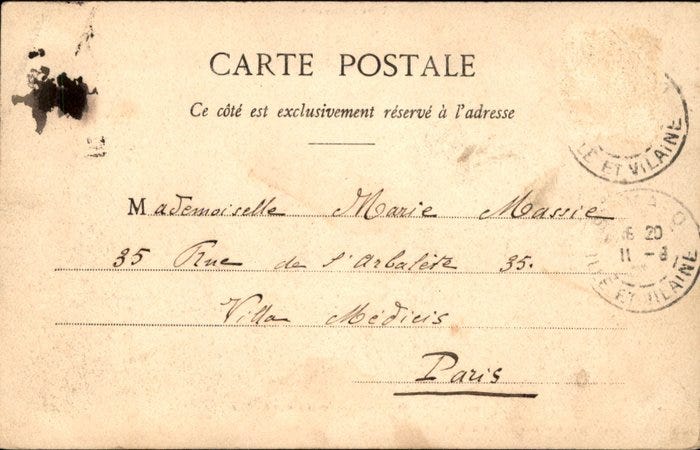 CARTE POSTALE
Ce côté est exclusivement réservé à l'adresse
Mademoiselle Marie Massie
35 Rue de l'Arbalète 35.
Villa Médicis
Paris
LE ET VILAINE
20
11 -
ILLE ET VILAINE